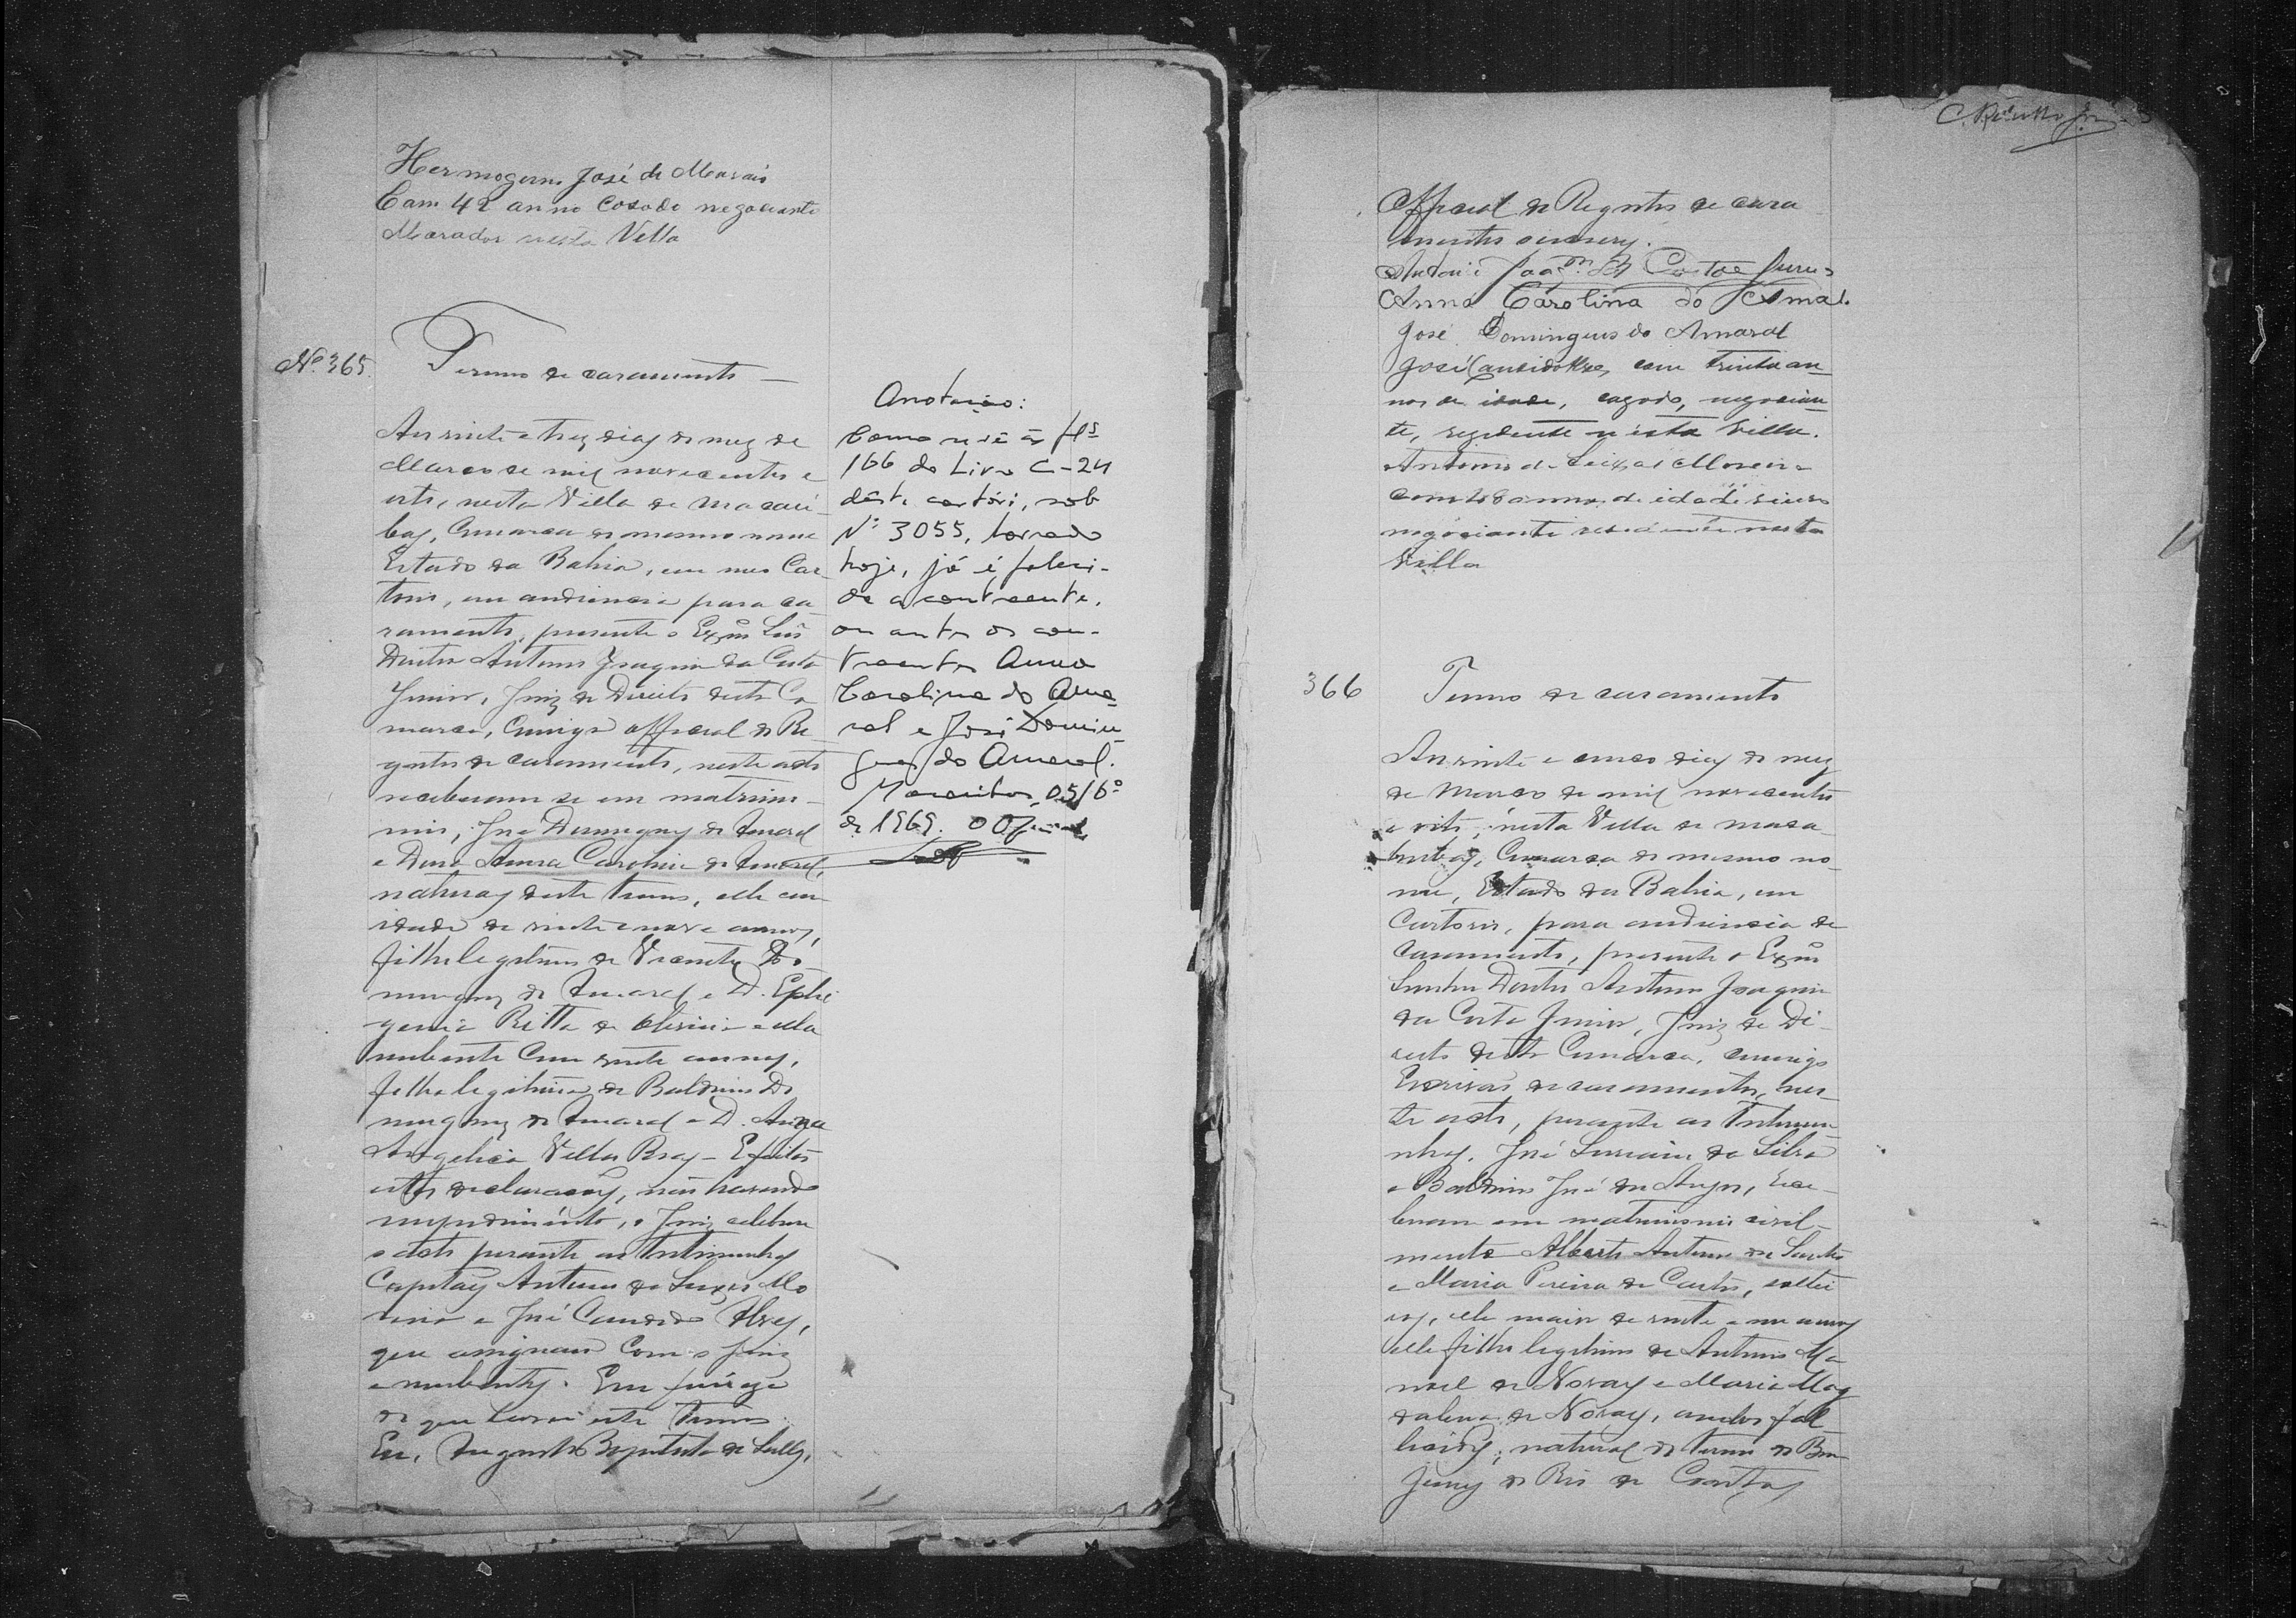 Hermogenes José de Moraes
Com 42 anno Casado negociante
Morador nesta Villa
Nº 365
Termo de casamento
Aos vinte e trez dias do mez de
Março de mil novecentos e
oito, nesta Villa de Macaú-
bas, Comarca do mesmo nome
Estado da Bahia, em meu Car-
torio, em audiencia para ca-
samento, presente o Exmº Snr
Doutor Antonio Joaquim da Costa
Junior, Juiz de Direito desta Co-
marca, Comigo official do Re-
gisto de casamento, neste acto
receberam se em matrimo-
nio, José Domingues do Amaral
e Dona Anna Carolina do Amaral,
naturaes deste termo, elle com
idade de vinte e nove annos,
filho legitimo de Vicente Do-
mingues do Amaral e D. Ephi-
genia Ritta de e ella
nubente com vinte annos,
filha legitima de Baldoino Do-
mingues do Amaral e D. Anna
Angelica Villas Boas - E feitas
estas declarações, não havendo
impedimento, o Juiz celebrou
o acto perante as testimunhas
Capitão Antonio de Seixas Mo-
reira e José Candido Alves,
que assignam com o Juiz
e nubentes. Em fé
do que lavrei este termo
Eu, Augusto Baptista de
Anotação:
Como se vê às fls
166 do Livro C-24
dêste cartóri, sob
Nº 3055, lavrado
hoje, já é faleci-
da a contraente.
ou antes os con-
traentes Anna
Carolina do Ama-
ral e José Domin-
gues do Amaral.
Macaubas, 05/6º
de 1969. O Oficial,
Official do Registro de casa-
mentos
Antonio Joaqm da Costa Junior
Anna Carolina do Amal.
José Domingues do Amaral
José Candido Alves, com trinta an-
nos de idade, cazado, negocian-
te, rezidente n'esta Villa.
Antonio de Seixas Moreira
com 28 annos de idade viuvo
negociante residente nesta
Villa
366
Termo de casamento
Aos vinte e cinco dias do mez
de Março de mil novecentos
e oito, nesta Villa de Maca-
hubas, Comarca do mesmo no-
me, Estado da Bahia, em
Cartorio, para audiencia de
casamento, presente o Exmº
Senhor Doutor Antonio Joaquim
da Costa Junior, Juiz de Di-
reito desta Comarca, comigo
Escrivão de casamentos, nes-
te acto, perante as testemu-
nhas, José da Silva
e Baldoino José dos Anjos, rece-
beram em matrimonio civil-
mente Alberto Antonio dos Santos
e Maria Pereira de Castro, soltei-
ros, elle maior de vinte e um annos
elle filho legitimo de Antonio Ma-
noel de Novaes e Maria Mag-
dalena de Novaes, ambos fal-
lecidos, natural do termo do Bom
Jesus do Rio de Contas